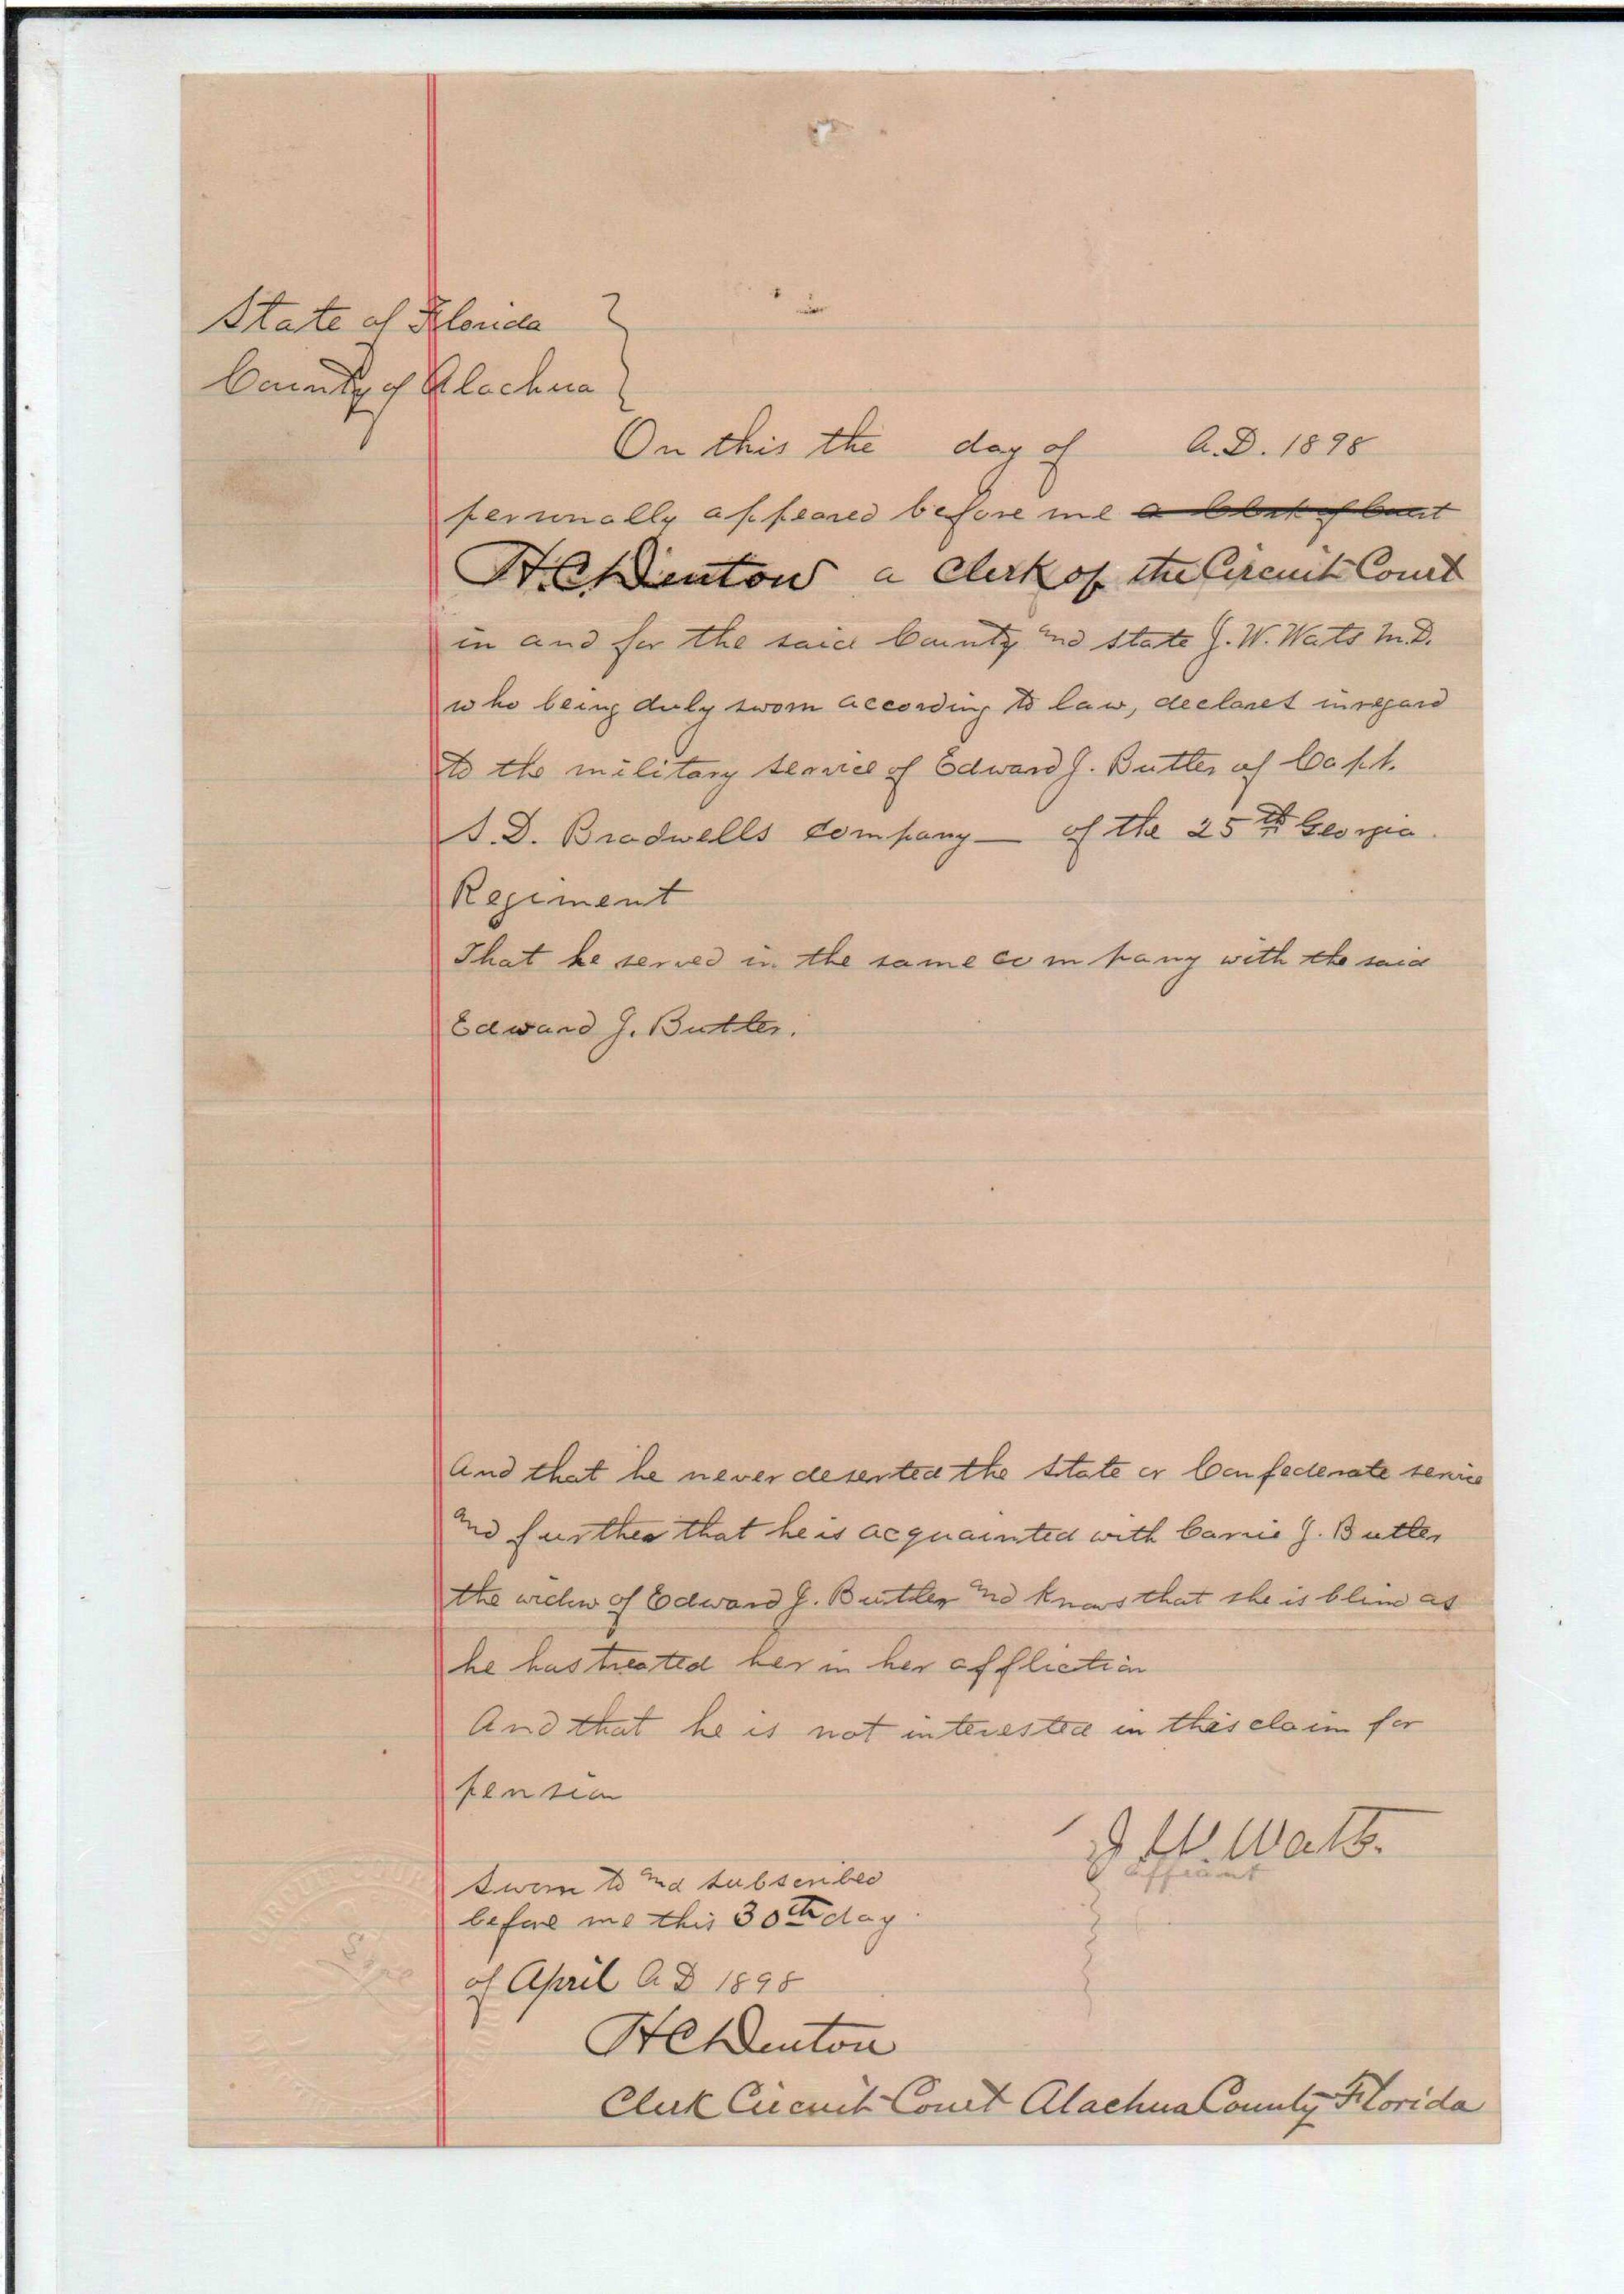 State of Florida
County of Alachua
On this the day of A.D. 1898
personally appeared before me a Clerk of Court
H.C. Denton a Clerk of the Circuit Court
in and for the said County and state J. W. Wats M.D.
who being duly sworn according to law, declares in regard
to the military service of Edward J. Butler of Capt.
S. D. Bradwells Company — of the 25th Georgia
Regiment
That he served in the same company with the said
Edward J. Butler.
And that he never deserted the State or Confederate service
and further that he is acquainted with Carrie J. Butler
the widow of Edward J. Buttler and knows that she is blind as
he has treated her in her affliction
And that he is not interested in this claim for
pension
J. W. Watts.
affiant
Sworn to and subscribed
before me this 30th day
of April A D 1898
H C Denton
Clerk Circuit Court Alachua County Florida